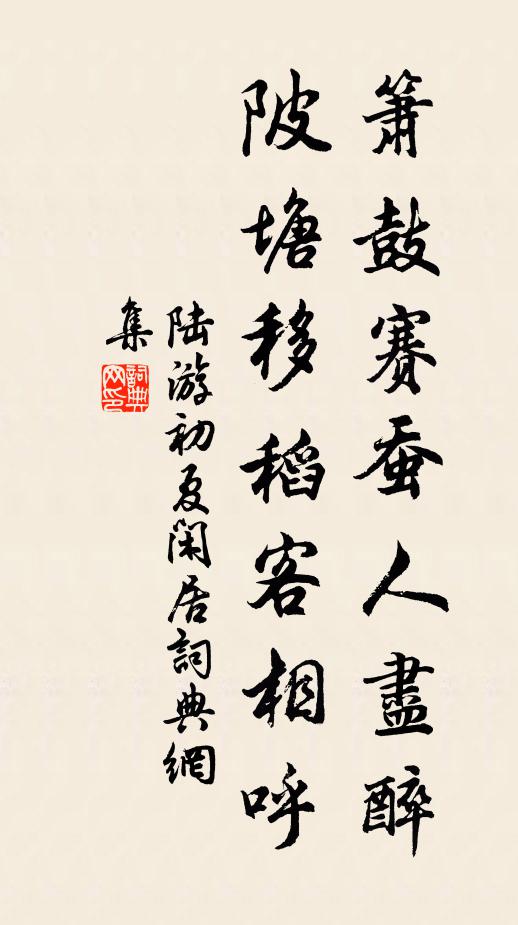 簫鼓賽蚕人盡醉
陂塘移稻客相呼
陸游初夏閑居詞典網
集
詞典
网印